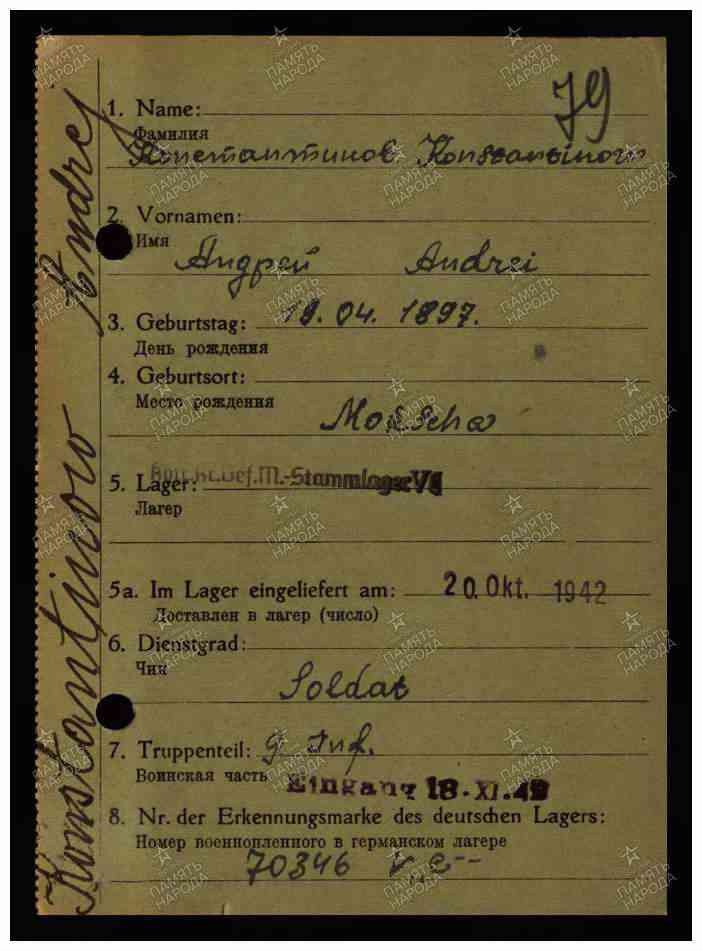 79
1. Name:
Фамилия
Константинов Konstantinow
2. Vornamen:
Имя
Андрей Andrei
3. Geburtstag: 19. 04. 1897.
День рождения
4. Geburtsort:
Место рождения
5. Lager: M.-Stammlager
Лагерь
5a. Im Lager eingeliefert am: 20. Okt. 1942
Доставлен в лагерь (число)
6. Dienstgrad:
Чин
Soldat
7. Truppenteil: 9 Inf.
Воинская часть
Eingang 18. XI. 42
8. Nr. der Erkennungsmarke des deutschen Lagers:
Номер военнопленного в германском лагере
70346
Konstantinow Andrej
ПАМЯТЬ НАРОДА